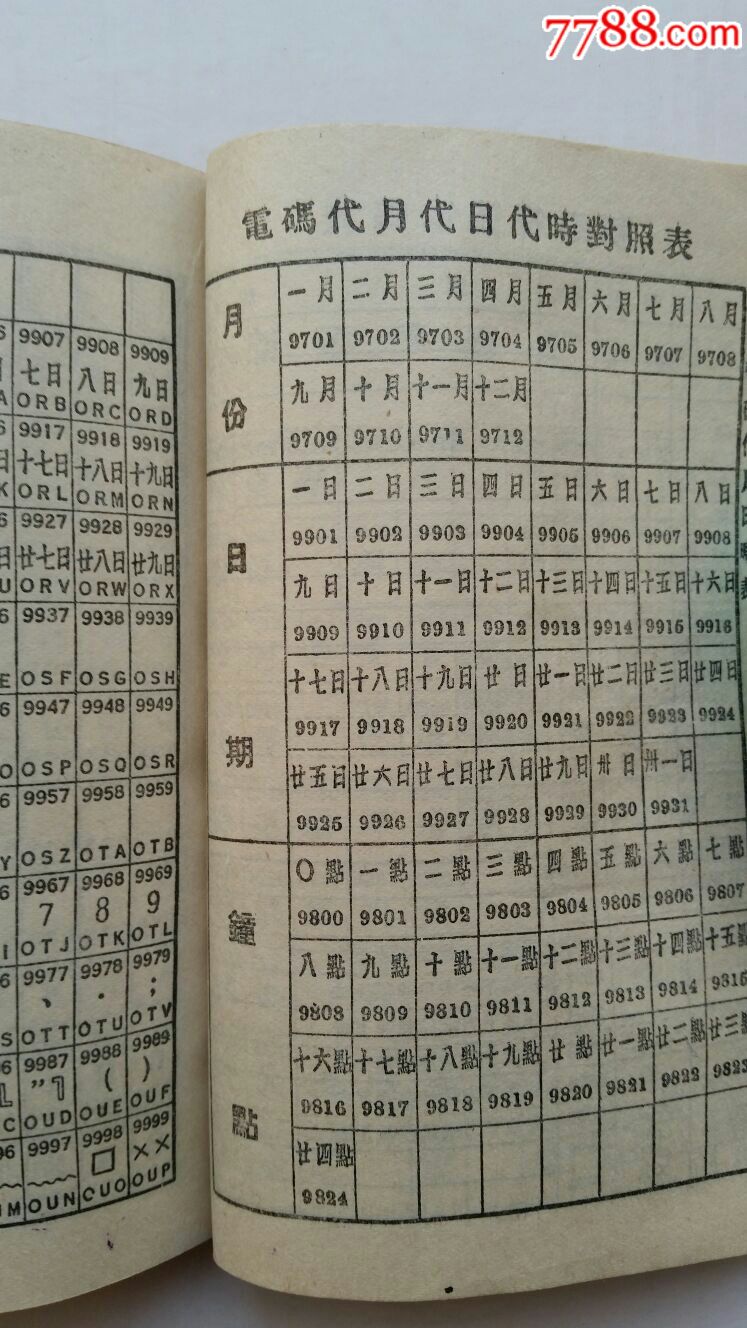 7788.com
9907 9908 9909
七日 八日 九日
ORB ORC ORD
9917 9918 9919
十七日 十八日 十九日
ORL ORM ORN
9927 9928 9929
廿七日 廿八日 廿九日
ORV ORW ORX
9937 9938 9939
OSF OSG OSH
9947 9948 9949
OSP OSQ OSR
9957 9958 9959
OSZ OTA OTB
9967 9968 9969
7 8 9
OTJ OTK OTL
9977 9978 9979
、 · ;
OTT OTU OTV
9987 9988 9989
( )
OUD OUE OUF
9997 9998 9999
□ ××
OUN OUO OUP
電碼代月代日代時對照表
月份
一月 二月 三月 四月 五月 六月 七月 八月
9701 9702 9703 9704 9705 9706 9707 9708
九月 十月 十一月 十二月
9709 9710 9711 9712
日期
一日 二日 三日 四日 五日 六日 七日 八日
9901 9902 9903 9904 9905 9906 9907 9908
九日 十日 十一日 十二日 十三日 十四日 十五日 十六日
9909 9910 9911 9912 9913 9914 9915 9916
十七日 十八日 十九日 廿日 廿一日 廿二日 廿三日 廿四日
9917 9918 9919 9920 9921 9922 9923 9924
廿五日 廿六日 廿七日 廿八日 廿九日 卅日 卅一日
9925 9926 9927 9928 9929 9930 9931
鐘點
〇點 一點 二點 三點 四點 五點 六點 七點
9800 9801 9802 9803 9804 9805 9806 9807
八點 九點 十點 十一點 十二點 十三點 十四點 十五點
9808 9809 9810 9811 9812 9813 9814 9815
十六點 十七點 十八點 十九點 廿點 廿一點 廿二點 廿三點
9816 9817 9818 9819 9820 9821 9822 9823
廿四點
9824